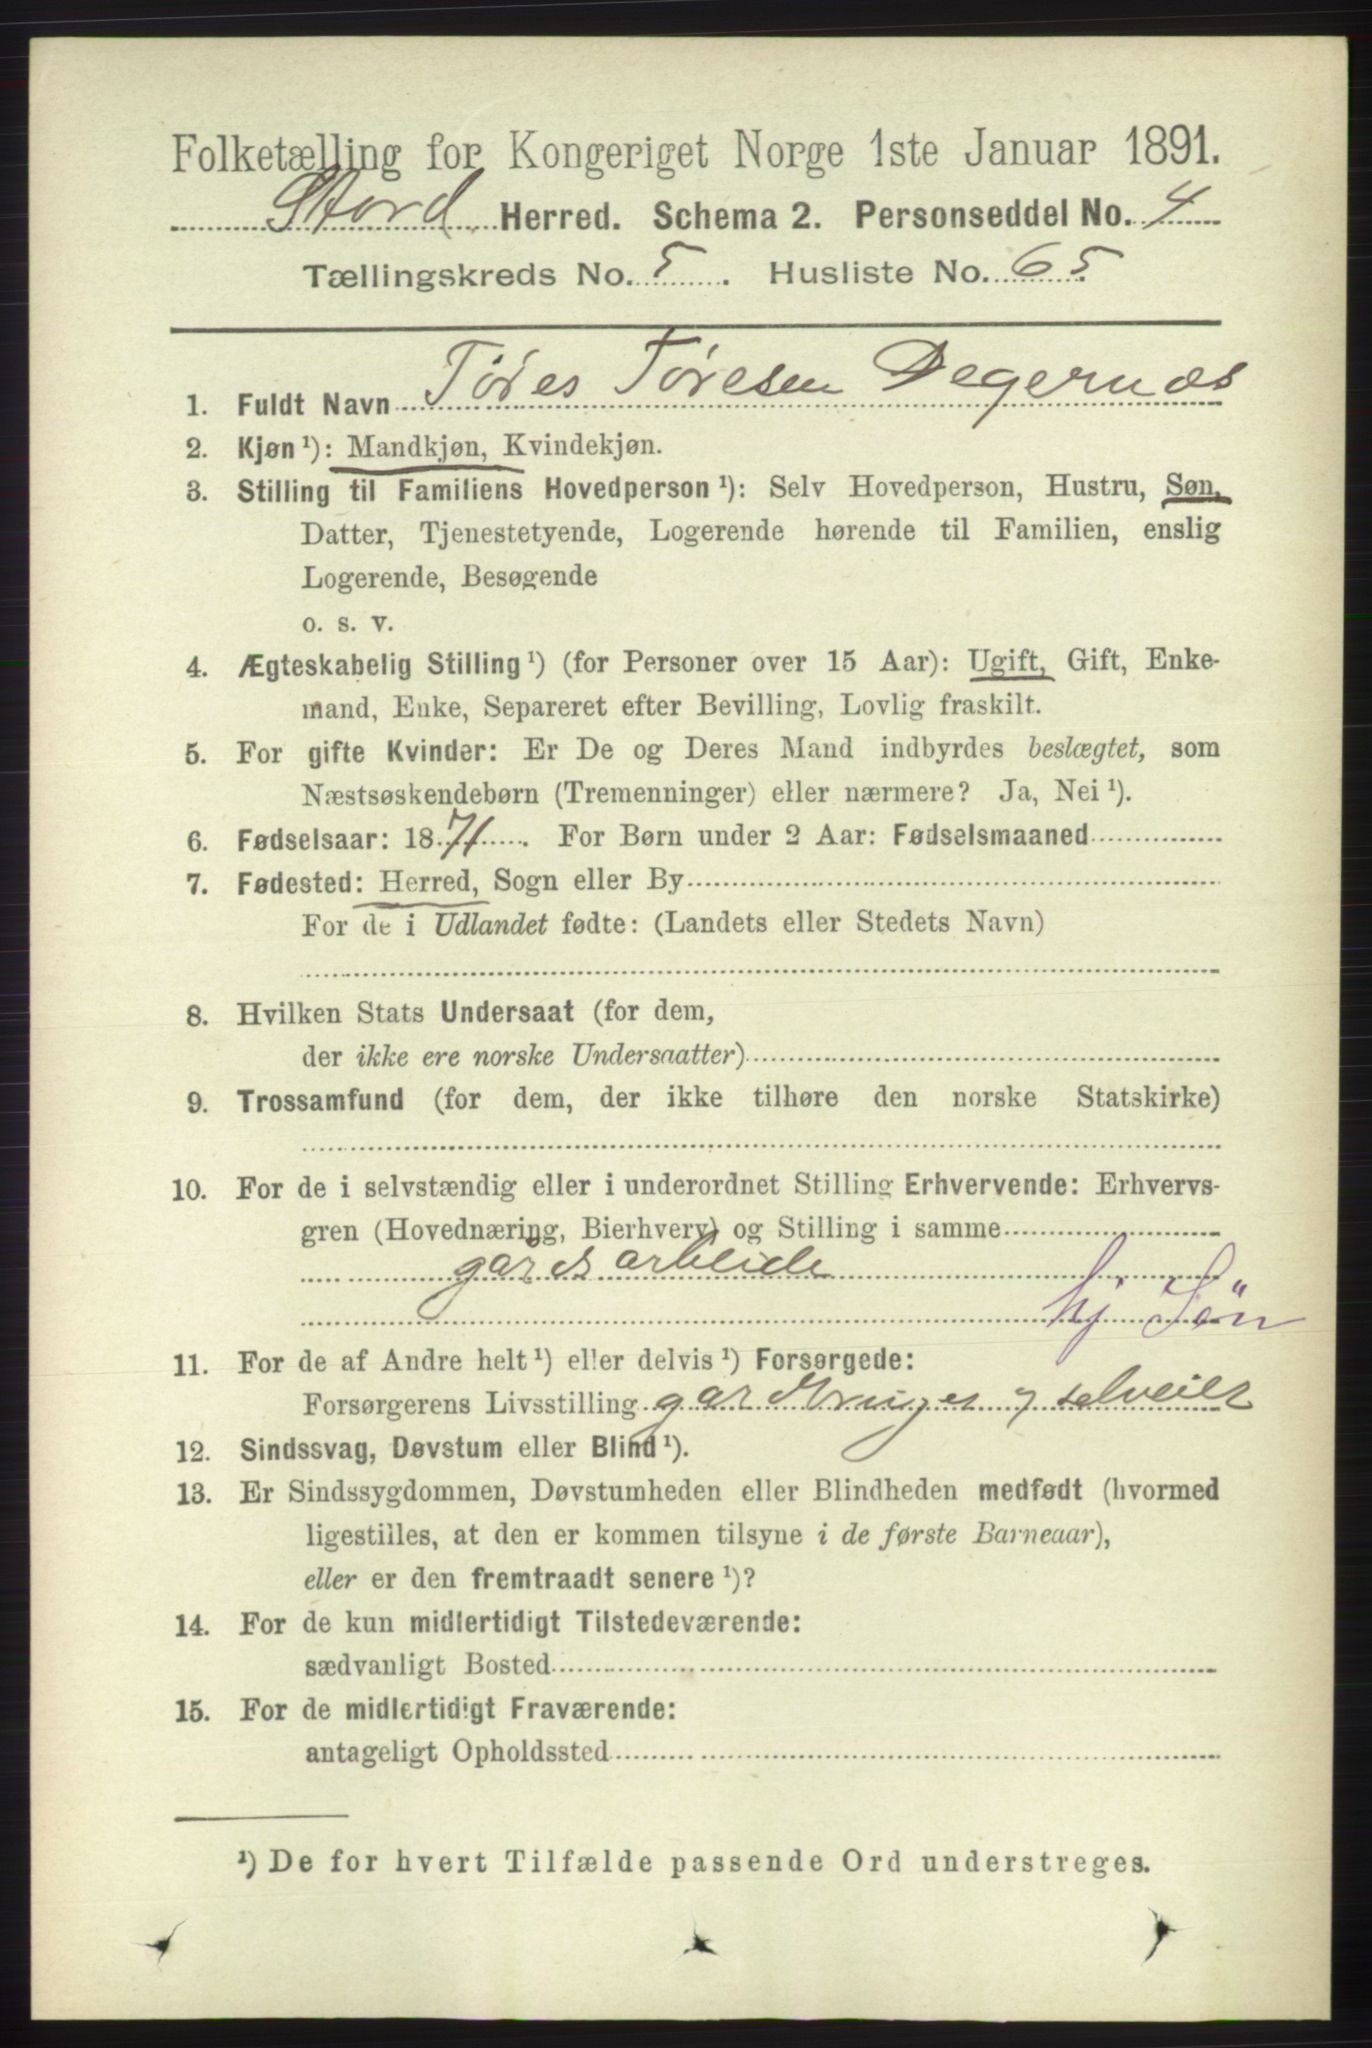 Folketælling for Kongeriget Norge 1ste Januar 1891.
Stord Herred. Schema 2. Personseddel No. 4
Tællingskreds No. 5. Husliste No. 65
1. Fuldt Navn Tøres Tøresen Degernæs
2. Kjøn ¹): Mandkjøn, Kvindekjøn.
3. Stilling til Familiens Hovedperson ¹): Selv Hovedperson, Hustru, Søn,
Datter, Tjenestetyende, Logerende hørende til Familien, enslig
Logerende, Besøgende
o. s. v.
4. Ægteskabelig Stilling ¹) (for Personer over 15 Aar): Ugift, Gift, Enke-
mand, Enke, Separeret efter Bevilling, Lovlig fraskilt.
5. For gifte Kvinder: Er De og Deres Mand indbyrdes beslægtet, som
Næstsøskendebørn (Tremenninger) eller nærmere? Ja, Nei ¹).
6. Fødselsaar: 1871. For Børn under 2 Aar: Fødselsmaaned
7. Fødested: Herred, Sogn eller By
For de i Udlandet fødte: (Landets eller Stedets Navn)
8. Hvilken Stats Undersaat (for dem,
der ikke ere norske Undersaatter)
9. Trossamfund (for dem, der ikke tilhøre den norske Statskirke)
10. For de i selvstændig eller i underordnet Stilling Erhvervende: Erhvervs-
gren (Hovednæring, Bierhverv) og Stilling i samme
gårdsarbeide
hj Søn
11. For de af Andre helt ¹) eller delvis ¹) Forsørgede:
Forsørgerens Livsstilling gardbruger selveier
12. Sindssvag, Døvstum eller Blind ¹).
13. Er Sindssygdommen, Døvstumheden eller Blindheden medfødt (hvormed
ligestilles, at den er kommen tilsyne i de første Barneaar),
eller er den fremtraadt senere ¹)?
14. For de kun midlertidigt Tilstedeværende:
sædvanligt Bosted
15. For de midlertidigt Fraværende:
antageligt Opholdssted
¹) De for hvert Tilfælde passende Ord understreges.